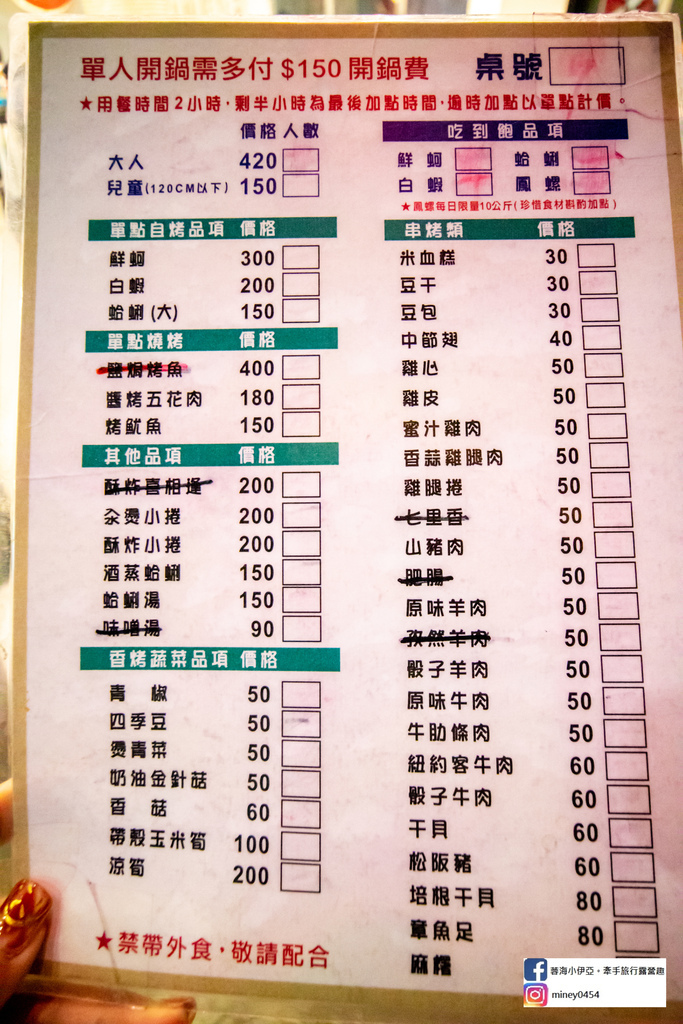 單人開鍋需多付$150開鍋費
桌號
★用餐時間2小時,剩半小時為最後加點時間,逾時加點以單點計價。
價格 人數
大人 420
兒童(120CM以下) 150
吃到飽品項
鮮蚵 蛤蜊
白蝦 鳳螺
★鳳螺每日限量10公斤(珍惜食材斟酌加點)
單點自烤品項 價格
鮮蚵 300
白蝦 200
蛤蜊(大) 150
單點燒烤 價格
鹽焗烤魚 400
醬烤五花肉 180
烤魷魚 150
其他品項 價格
酥炸喜相逢 200
汆燙小捲 200
酥炸小捲 200
酒蒸蛤蜊 150
蛤蜊湯 150
味噌湯 90
香烤蔬菜品項 價格
青 椒 50
四季豆 50
燙青菜 50
奶油金針菇 50
香 菇 60
帶殼玉米筍 100
涼筍 200
★禁帶外食,敬請配合
串烤類 價格
米血糕 30
豆干 30
豆包 30
中節翅 40
雞心 50
雞皮 50
蜜汁雞肉 50
香蒜雞腿肉 50
雞腿捲 50
七里香 50
山豬肉 50
肥腸 50
原味羊肉 50
孜然羊肉 50
骰子羊肉 50
原味牛肉 50
牛肋條肉 50
紐約客牛肉 60
骰子牛肉 60
干貝 60
松阪豬 60
培根干貝 80
章魚足 80
麻糬
蓉海小伊亞。牽手旅行露營趣
miney0454